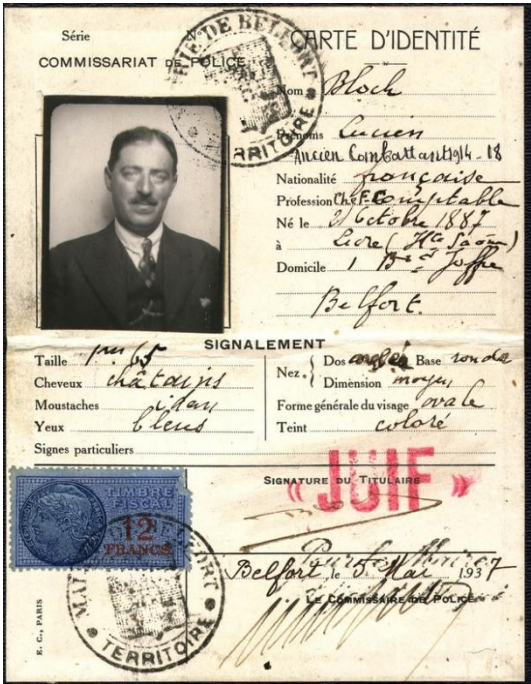 Série N°
COMMISSARIAT DE POLICE
MAIRIE DE BELFORT
TERRITOIRE
CARTE D'IDENTITÉ
Nom Bloch
Prénoms Lucien
Ancien Combattant 1914-18
Nationalité française
Profession Chef Comptable
Né le 21 Octobre 1887
à (Hte Saône)
Domicile 1 Bd Joffre
Belfort.
SIGNALEMENT
Taille 65
Cheveux châtains
Moustaches idem
Yeux bleus
Signes particuliers
Nez. Dos Base ronde
Dimension moyen
Forme générale du visage ovale
Teint coloré
TIMBRE
FISCAL
12
FRANCS
SIGNATURE DU TITULAIRE
« JUIF »
Belfort, le 5 Mai 1937
LE COMMISSAIRE DE POLICE
MAIRIE DE BELFORT
TERRITOIRE
E. C., PARIS